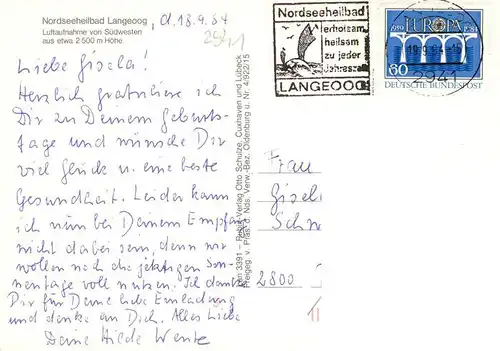 Nordseeheilbad Langeoog
Luftaufnahme von Südwesten
aus etwa 2 500 m Höhe
, d. 18.9.84
2941
Liebe Gisela!
Herzlich gratuliere ich
Dir zu Deinem Geburts-
tage und wünsche Dir
viel Glück u. eine beste
Gesundheit. Leider kann
ich nun bei Deinem Empfang
nicht dabei sein, denn wir
wollen noch die jetzigen Son-
nentage voll nutzen. Ich danke
Dir für Deine liebe Einladung
und denke an Dich. Alles Liebe
Deine Hilde Wente
3391 – Verlag Otto Schulze, Cuxhaven und Lübeck
Freigeg. v. Präs. d. Nds. Verw.-Bez. Oldenburg u. Nr. 4922/15
Nordseeheilbad
erholsam
heilsam
zu jeder
Jahreszeit
LANGEOOG
2941
EUROPA
1959
1984
60
DEUTSCHE BUNDESPOST
Frau
Gisel
Schn
2800